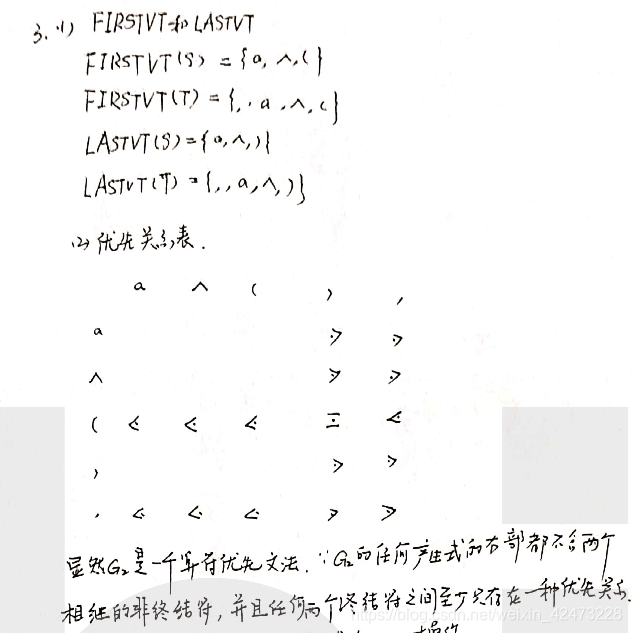 3. (1) FIRSTVT和LASTVT
FIRSTVT(S) = {a, ∧, (}
FIRSTVT(T) = {, , a, ∧, (}
LASTVT(S) = {a, ∧, )}
LASTVT(T) = {, , a, ∧, )}
(2) 优先关系表.
a ∧ ( ) ,
a ⋗ ⋗
∧ ⋗ ⋗
( ⋖ ⋖ ⋖ ≐ ⋖
) ⋗ ⋗
, ⋖ ⋖ ⋖ ⋗ ⋗
显然G₂是一个算符优先文法. ∵G₂的任何产生式的右部都不含两个
相继的非终结符, 并且任何两个终结符之间至少只存在一种优先关系.
https://blog.csdn.net/weixin_42473228